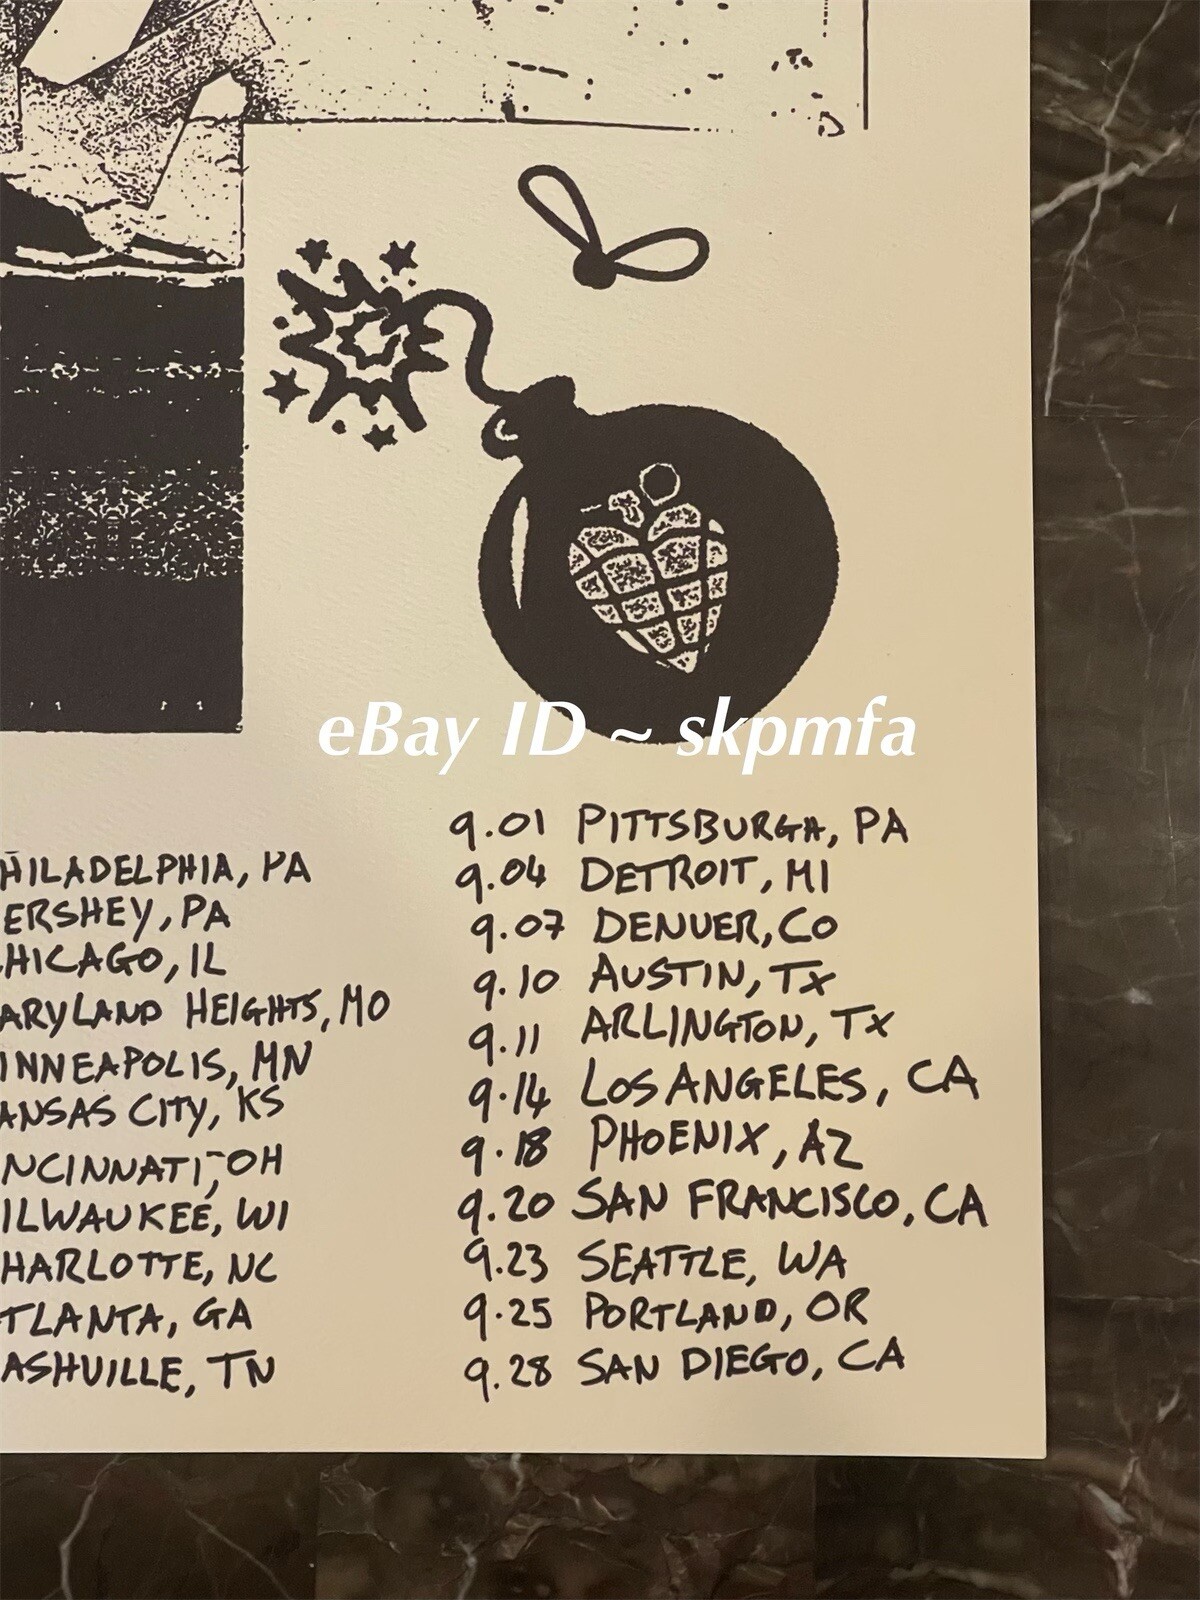 eBay ID ~ skpmfa
HILADELPHIA, PA
ERSHEY, PA
HICAGO, IL
ARYLAND HEIGHTS, MO
INNEAPOLIS, MN
ANSAS CITY, KS
NCINNATI, OH
ILWAUKEE, WI
HARLOTTE, NC
TLANTA, GA
ASHVILLE, TN
9.01 PITTSBURGH, PA
9.04 DETROIT, MI
9.07 DENVER, CO
9.10 AUSTIN, TX
9.11 ARLINGTON, TX
9.14 LOS ANGELES, CA
9.18 PHOENIX, AZ
9.20 SAN FRANCISCO, CA
9.23 SEATTLE, WA
9.25 PORTLAND, OR
9.28 SAN DIEGO, CA